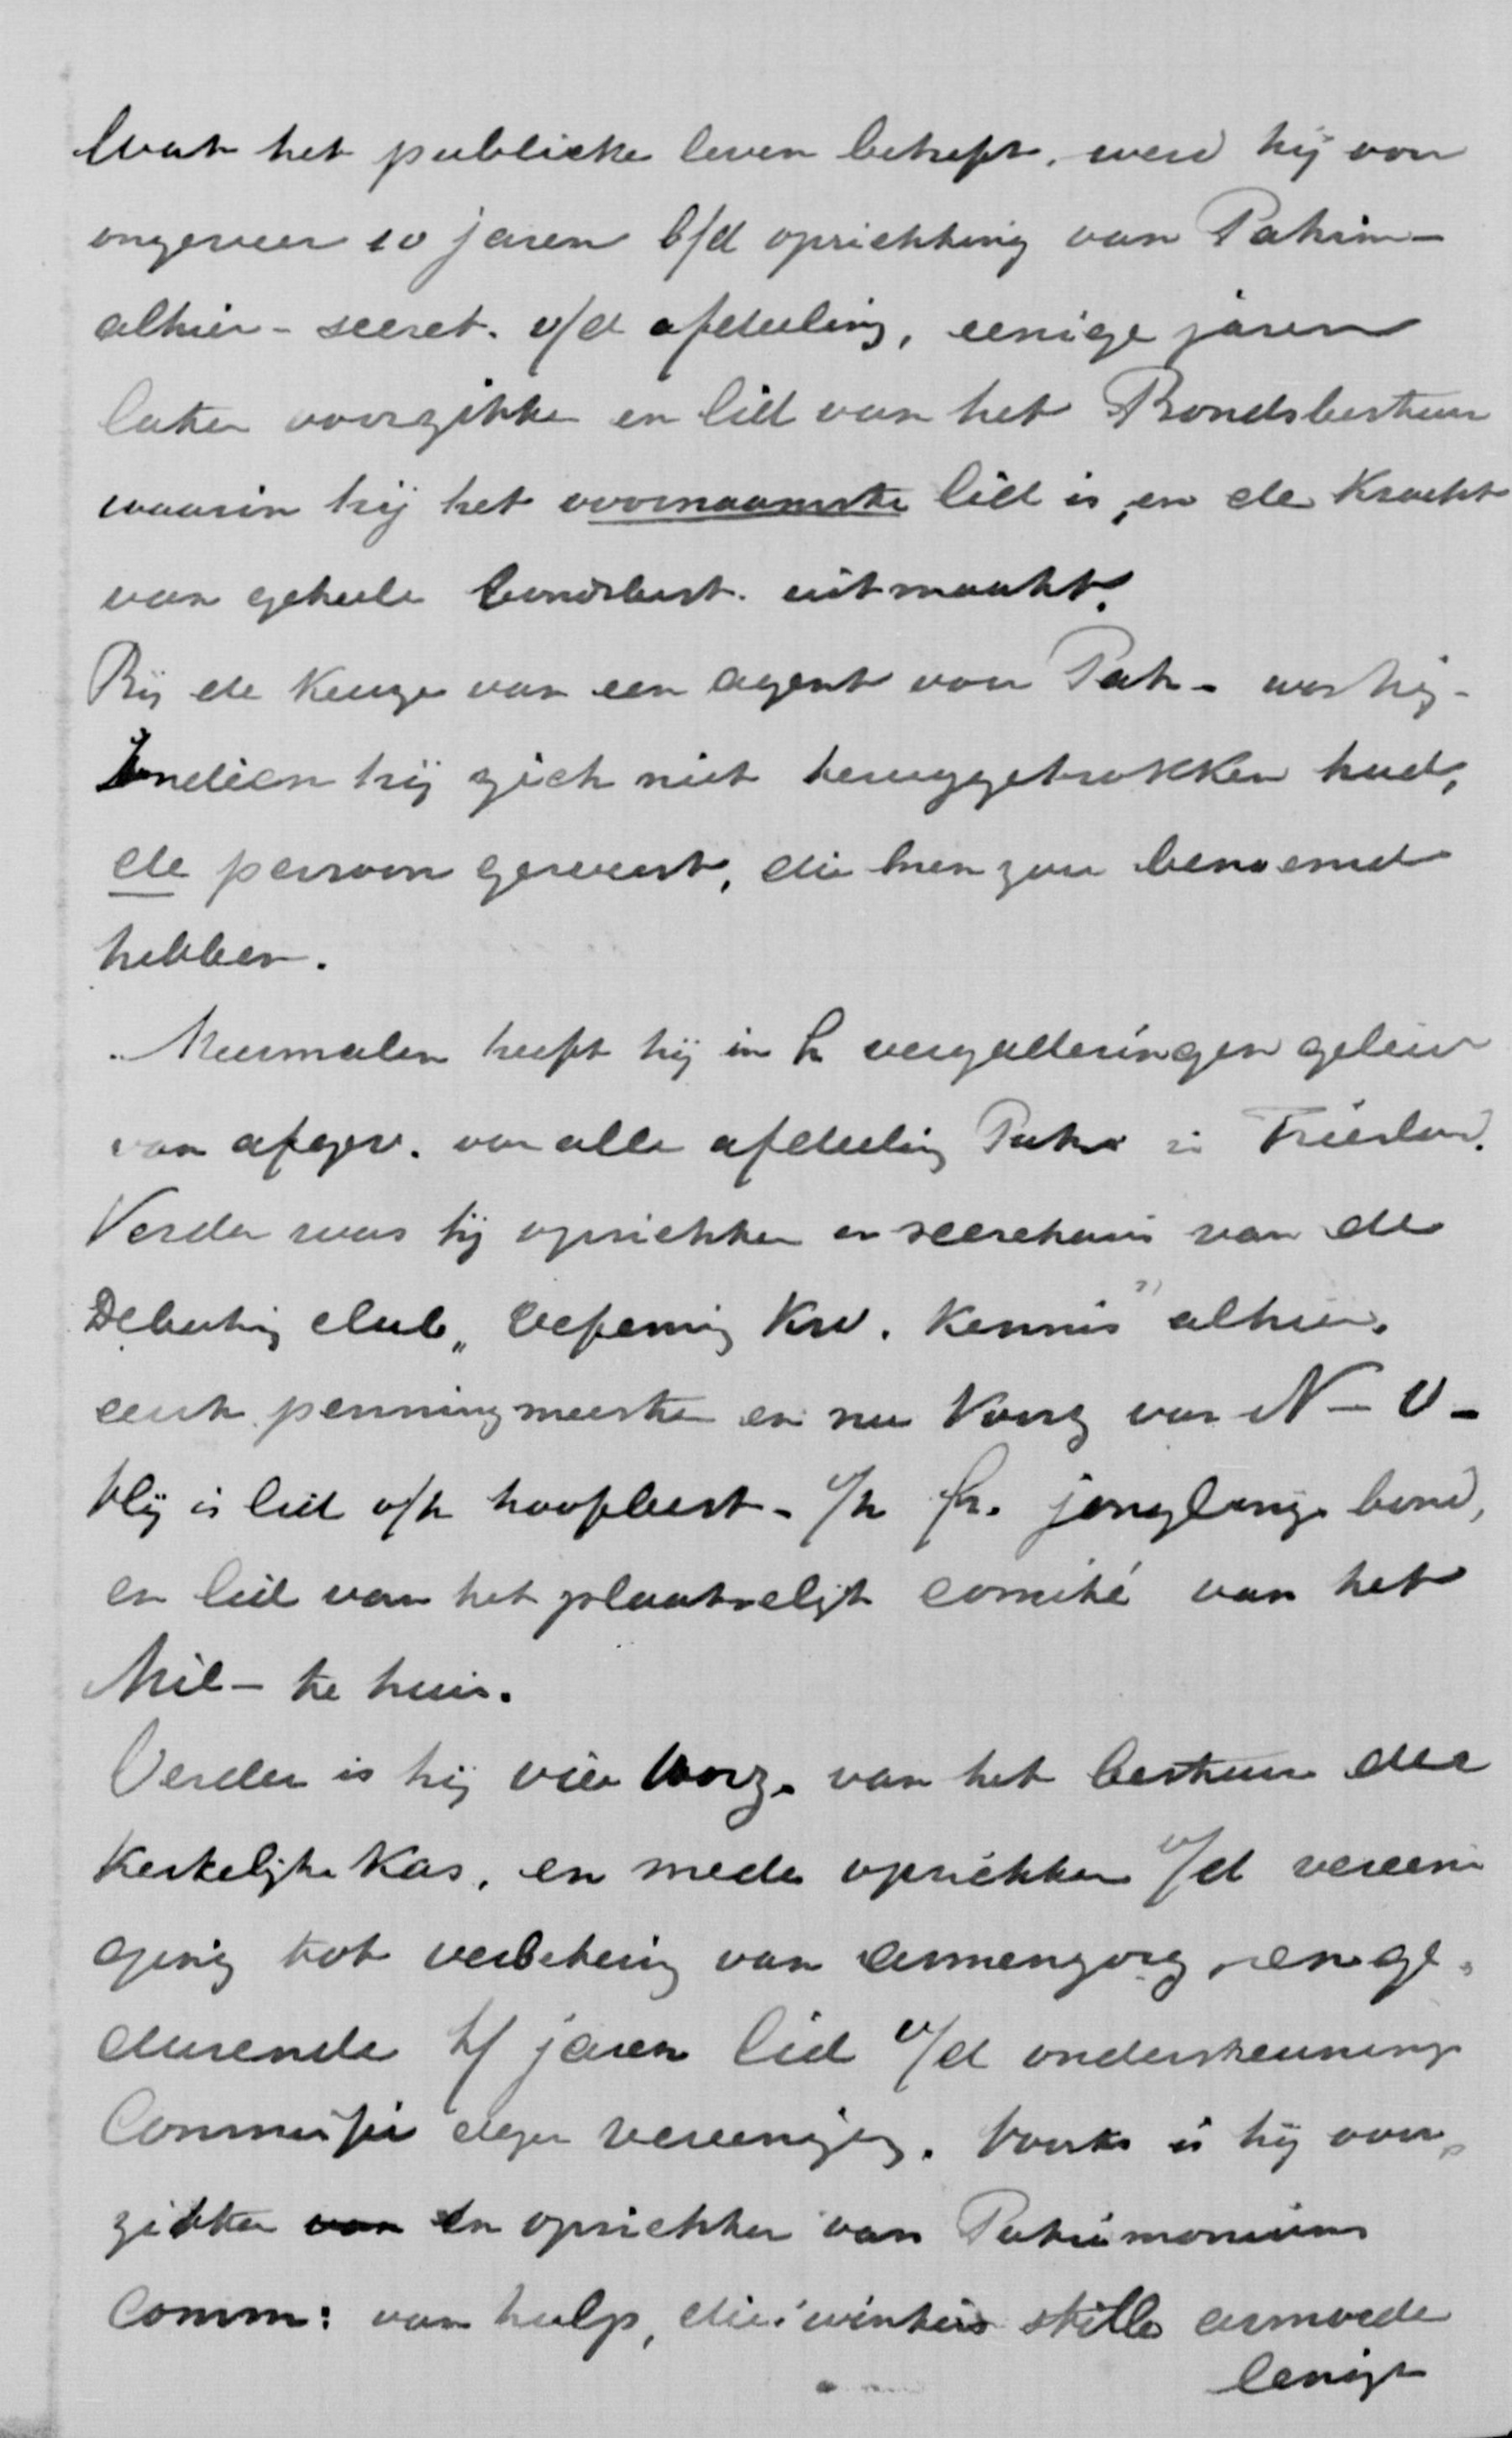 Wat het publieke leven betreft, werd hij voor
ongeveer 10 jaren b/d oprichting van Patrim-
alhier - secret. v/d afdeeling, eenige jaren
later voorzitter en lid van het Bondsbestuur
waarin hij het voornaamste lid is, en de Kracht
van geheele bondsbest. uitmaakt.
Bij de Keuze van een agent voor Patr- was hij-
Indien hij zich niet teruggetrokken had,
de persoon geweest, die men zou benoemd
hebben.
Meermalen heeft hij in h vergaderingen geleid
van afgev. van alle afdeeling Patr. in Friesland.
Verder was hij oprichter en secretaris van de
Debating club „Oefening Kw. Kennis" alhier.
eerst penningmeester en nu Voorz van N-O-
Hij is lid v/h hoofdbest- v/h fr. jongelings bond,
en lid van het plaatselijk comité van het
Mil- te huis.
Verder is hij vice Voorz. van het bestuur der
Kerkelijke Kas, en mede oprichter v/d vereeni
ging tot verbetering van armenzorg, en ge-
durende jaren lid v/d ondersteunings
Commissie dezer vereeniging. Voorts is hij voor-
zitter van en oprichter van Patrimoniums
Comm: van hulp, die 's winters stille armoede
lenigt